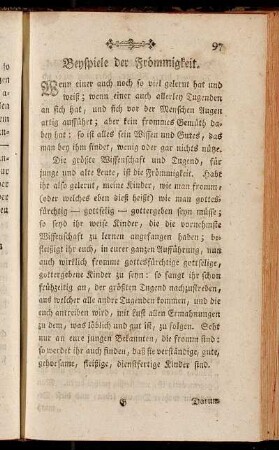 97
Beyspiele der Frömmigkeit.
Wenn einer auch noch so viel gelernt hat und
weiß; wenn einer auch allerley Tugenden
an sich hat, und sich vor der Menschen Augen
artig aufführt; aber kein frommes Gemüth da-
bey hat: so ist alles sein Wissen und Gutes, das
man bey ihm findet, wenig oder gar nichts nütze.
Die größte Wissenschaft und Tugend, für
junge und alte Leute, ist die Frömmigkeit. Habt
ihr also gelernt, meine Kinder, wie man fromm
(oder welches eben dieß heißt) wie man gottes-
fürchtig — gottselig — gottergeben seyn müsse;
so seyd ihr weise Kinder, die die vornehmste
Wissenschaft zu lernen angefangen haben; be-
fleißiget ihr euch, in eurer ganzen Aufführung, nun
auch wirklich fromme gottesfürchtige gottselige,
gottergebene Kinder zu seyn: so fangt ihr schon
frühzeitig an, der größten Tugend nachzustreben,
aus welcher alle andre Tugenden kommen, und die
euch antreiben wird, mit Lust allen Ermahnungen
zu dem, was löblich und gut ist, zu folgen. Seht
nur an eure jungen Bekannten, die fromm sind:
so werdet ihr auch finden, daß sie verständige, gute,
gehorsame, fleißige, dienstfertige Kinder sind.
G Darum